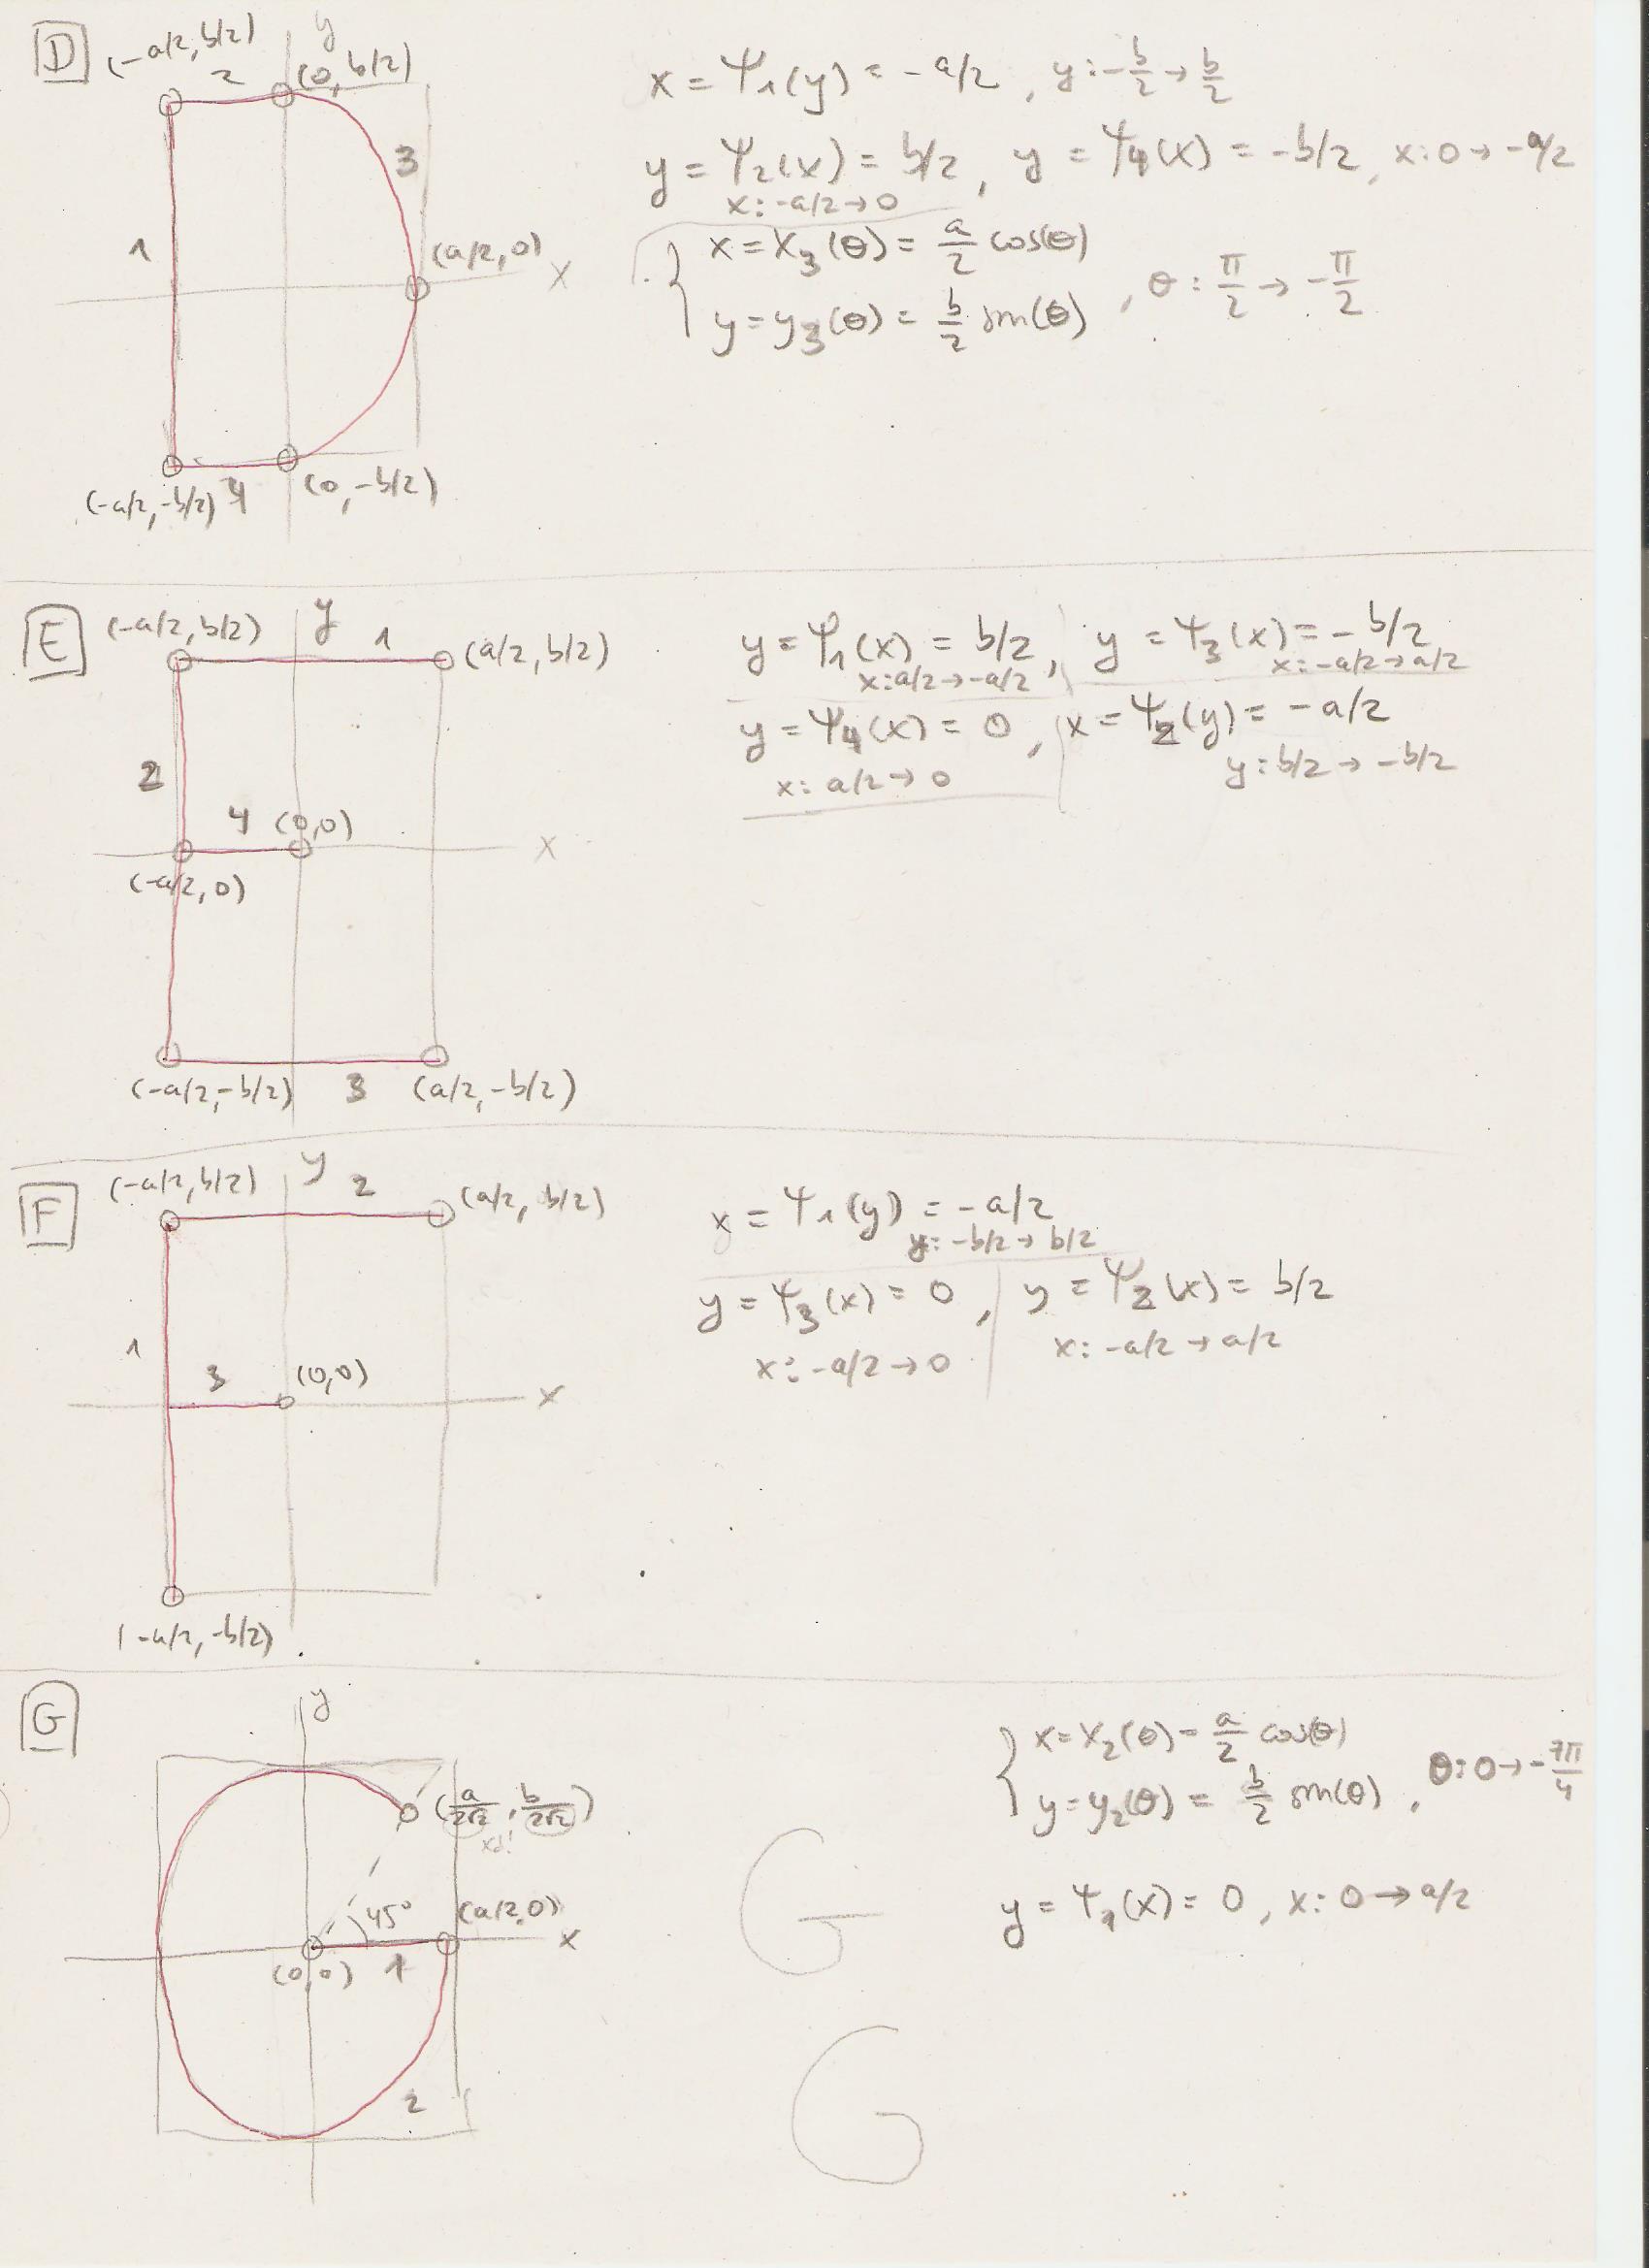 D
(-a/2, b/2)
y
2
(0, b/2)
3
1
(a/2, 0)
x
(-a/2, -b/2)
4
(0, -b/2)
x = Ψ1(y) = -a/2 , y: -b/2 → b/2
y = Ψ2(x) = b/2 , y = Ψ4(x) = -b/2, x: 0 → -a/2
x: -a/2 → 0
x = x3(θ) = a/2 cos(θ)
y = y3(θ) = b/2 sin(θ) , θ: π/2 → -π/2
E
(-a/2, b/2)
y
1
(a/2, b/2)
2
4
(0,0)
x
(-a/2, 0)
(-a/2, -b/2)
3
(a/2, -b/2)
y = Ψ1(x) = b/2 , y = Ψ3(x) = -b/2
x: a/2 → -a/2
x: -a/2 → a/2
y = Ψ4(x) = 0 , x = Ψ2(y) = -a/2
x: a/2 → 0
y: b/2 → -b/2
F
(-a/2, b/2)
y
2
(a/2, b/2)
1
3
(0,0)
x
(-a/2, -b/2)
x = Ψ1(y) = -a/2
y: -b/2 → b/2
y = Ψ3(x) = 0 , y = Ψ2(x) = b/2
x: -a/2 → 0
x: -a/2 → a/2
G
y
(a/2√2, b/2√2)
45°
(a/2, 0)
x
(0,0)
1
2
x = x2(θ) = a/2 cos(θ)
y = y2(θ) = b/2 sin(θ) , θ: 0 → -7π/4
y = Ψ1(x) = 0 , x: 0 → a/2
G
G